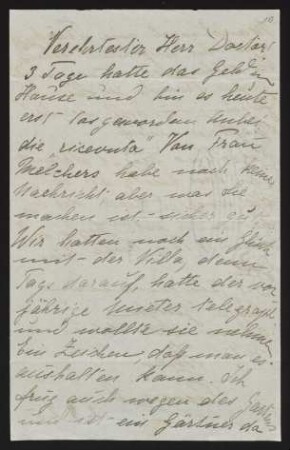 10
Verehrtester Herr Doctor!
3 Tage hatte das Geld im
Hause und bin es heute
erst losgeworden anbei
die ricevuta. Von Frau
Melchers habe noch keine
Nachricht aber was sie
machen ist sicher gut
Wir hatten noch ein Glück
mit der Villa, denn
Tags darauf, hatte der vor
jährige Mieter telegraf.
und wollte sie nehmen
Ein Zeichen, daß man es
aushalten kann. Ich
frug auch wegen des Gartens
und ist ein Gärtner da